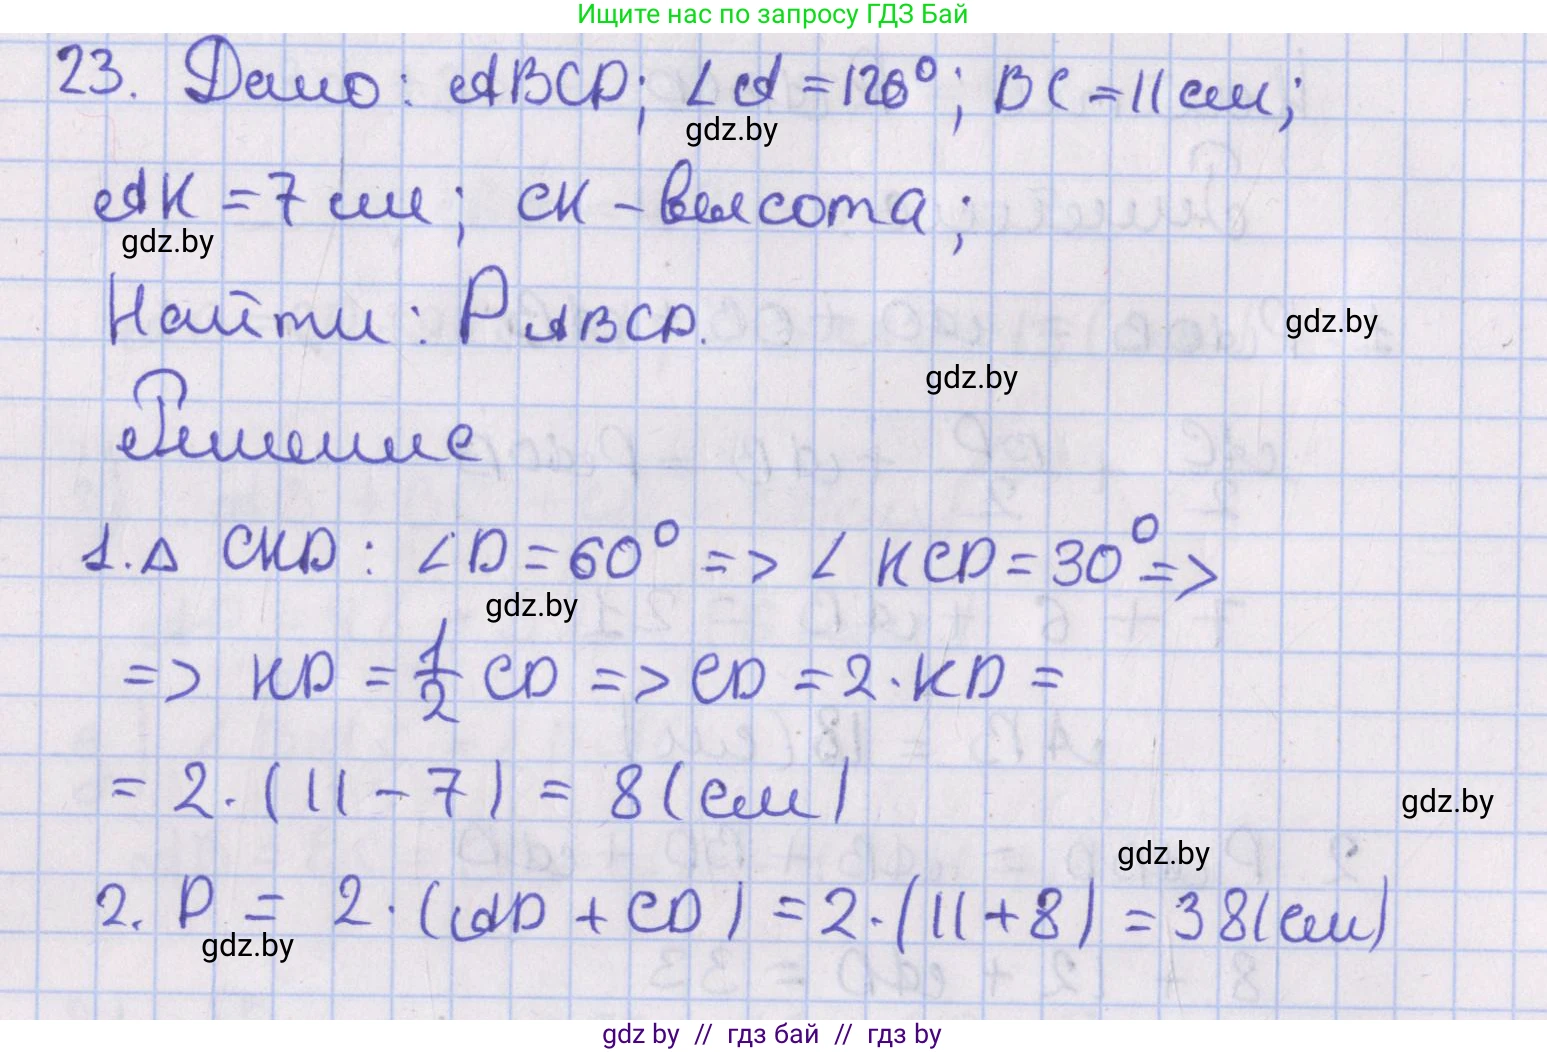 Ищите нас по запросу ГДЗ Бай
23. Дано: ABCD; ∠A = 120°; BC = 11 см;
gdz.by
AK = 7 см; CK – высота;
gdz.by
Найти: P ABCD.
gdz.by
gdz.by
Решение
1. Δ CKD: ∠D = 60° => ∠KCD = 30° =>
gdz.by
=> KD = 1/2 CD => CD = 2 · KD =
= 2 · (11 – 7) = 8 (см)
gdz.by
gdz.by
2. P = 2 · (AD + CD) = 2 · (11 + 8) = 38 (см)
gdz.by
gdz.by // гдз бай // гдз by